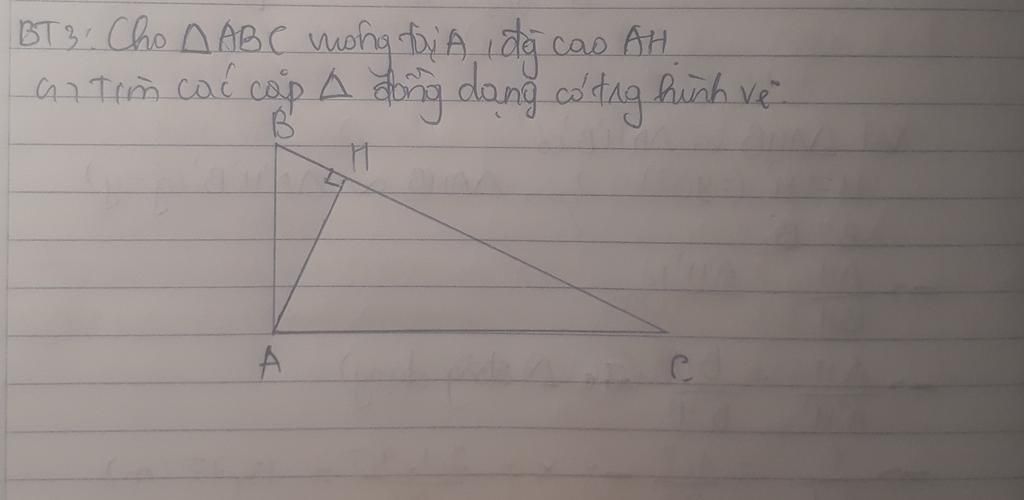 BT3: Cho △ABC vuông tại A, đg cao AH
a, Tìm các cặp △ đồng dạng có trg hình vẽ.
B
H
A
C